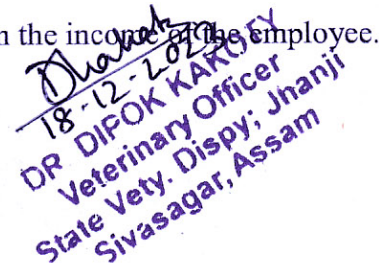 n the income of the employee.
18-12-2023
DR DIFOK KAKOTY
Veterinary Officer
State Vety. Dispy; Jhanji
Sivasagar, Assam